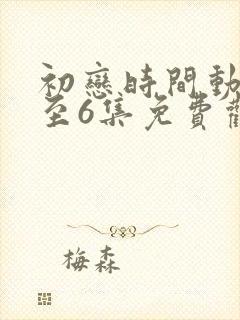 初戀時間動
至6集免費
梅森